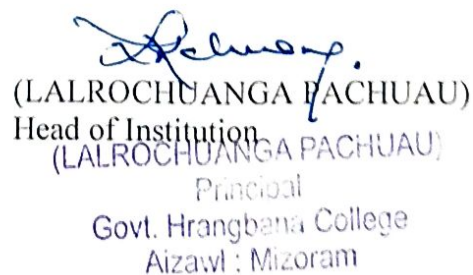 (LALROCHUANGA PACHUAU)
Head of Institution
(LALROCHUANGA PACHUAU)
Principal
Govt. Hrangbana College
Aizawl : Mizoram